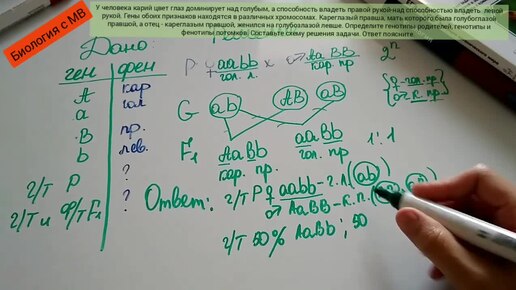 Биология с МВ
У человека карий цвет глаз доминирует над голубым, а способность владеть правой рукой над способностью владеть левой
рукой. Гены обоих признаков находятся в различных хромосомах. Кареглазый правша, мать которого была голубоглазой
правшой, а отец - кареглазым правшой, женился на голубоглазой левше. Определите генотипы родителей, генотипы и
фенотипы потомков. Составьте схему решения задачи. Ответ поясните.
Дано
ген фен
A кар
a гол
B пр.
b лев.
г/т P ?
г/т и ф/т F₁ ?
P ♀ aabb x ♂ AaBB 2ⁿ
гол. л. кар. пр
{♀-гол. пр.
♂ к. пр.}
G ab AB aB
F₁ AaBb aaBb 1:1
кар. пр. гол. пр
Ответ: г/т P ♀ aabb - г. л. (ab)
♂ AaBB - к. п.
г/т 50% AaBb ; 50